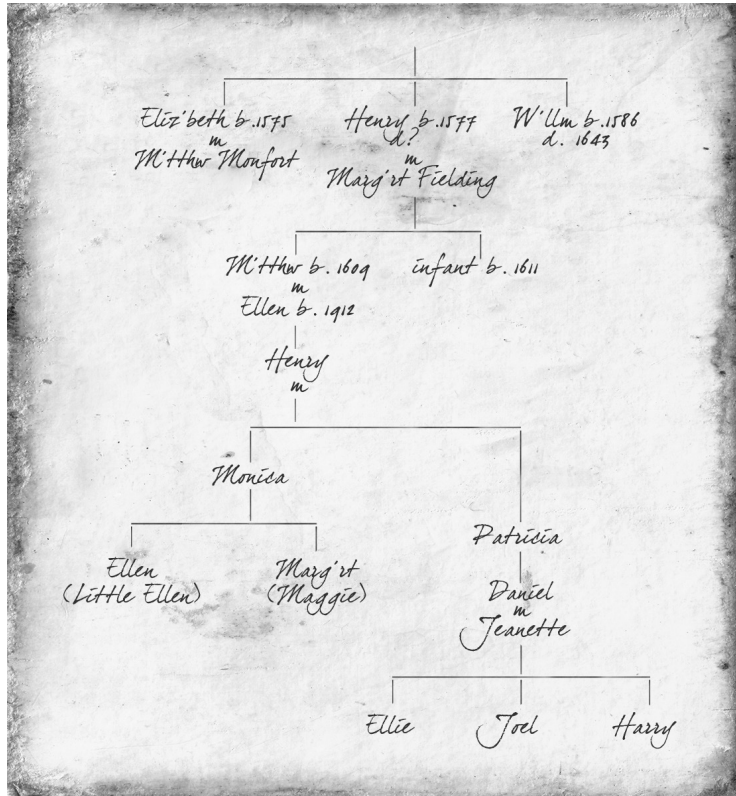 Eliz'beth b.1575
m
M'tthw Monfort
Henry b.1577
d?
m
Marg'rt Fielding
W'llm b.1586
d. 1643
M'tthw b. 1609
m
Ellen b. 1912
infant b. 1611
Henry
m
Monica
Patricia
Ellen
(Little Ellen)
Marg'rt
(Maggie)
Daniel
m
Jeanette
Ellie
Joel
Harry